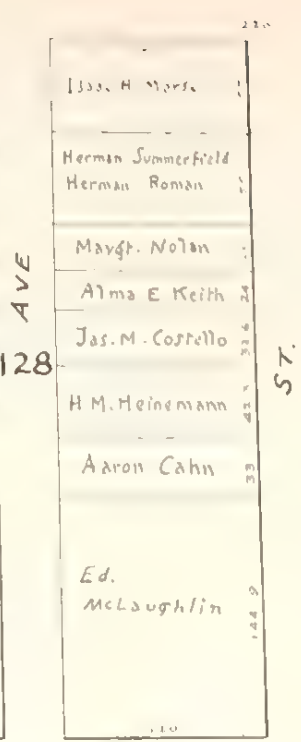 220
Isaac H Morse
Herman Summerfield
Herman Roman
Margt. Nolan
Alma E Keith 24
Jas. M. Costello 32 6
H M. Heinemann
Aaron Cahn 33
Ed.
McLaughlin 144 9
AVE
128
ST.